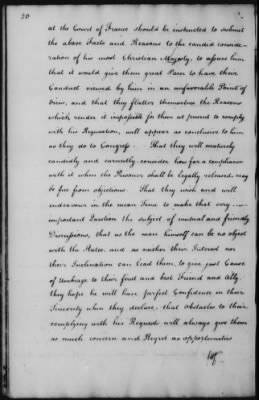 20
at the Court of France should be instructed to submit
the above Facts and Reasons to the candid conside-
ration of his most Christian Majesty, to assure him
that it would give them great Pain to have their
Conduct viewed by him in an unfavorable Point of
View, and that they flatter themselves the Reasons
which render it impossible for them at present to comply
with his Requisition, will appear as conclusive to him
as they do to Congress. That they will maturely
candidly and earnestly consider how far a compliance
with it when the Prisoner shall be legally released, may
be free from objections. That they wish and will
endeavour in the mean Time to make that very im-
important Question the subject of mutual and friendly
Discussions, that as the man himself can be no object
with the States, and as neither their Interest nor
their Inclination can lead them to give just Cause
of Umbrage to their first and best Friend and Ally,
they hope he will have perfect Confidence in their
Sincerity when they declare, that obstacles to their
complying with his Requests will always give them
as much concern and Regret as opportunities